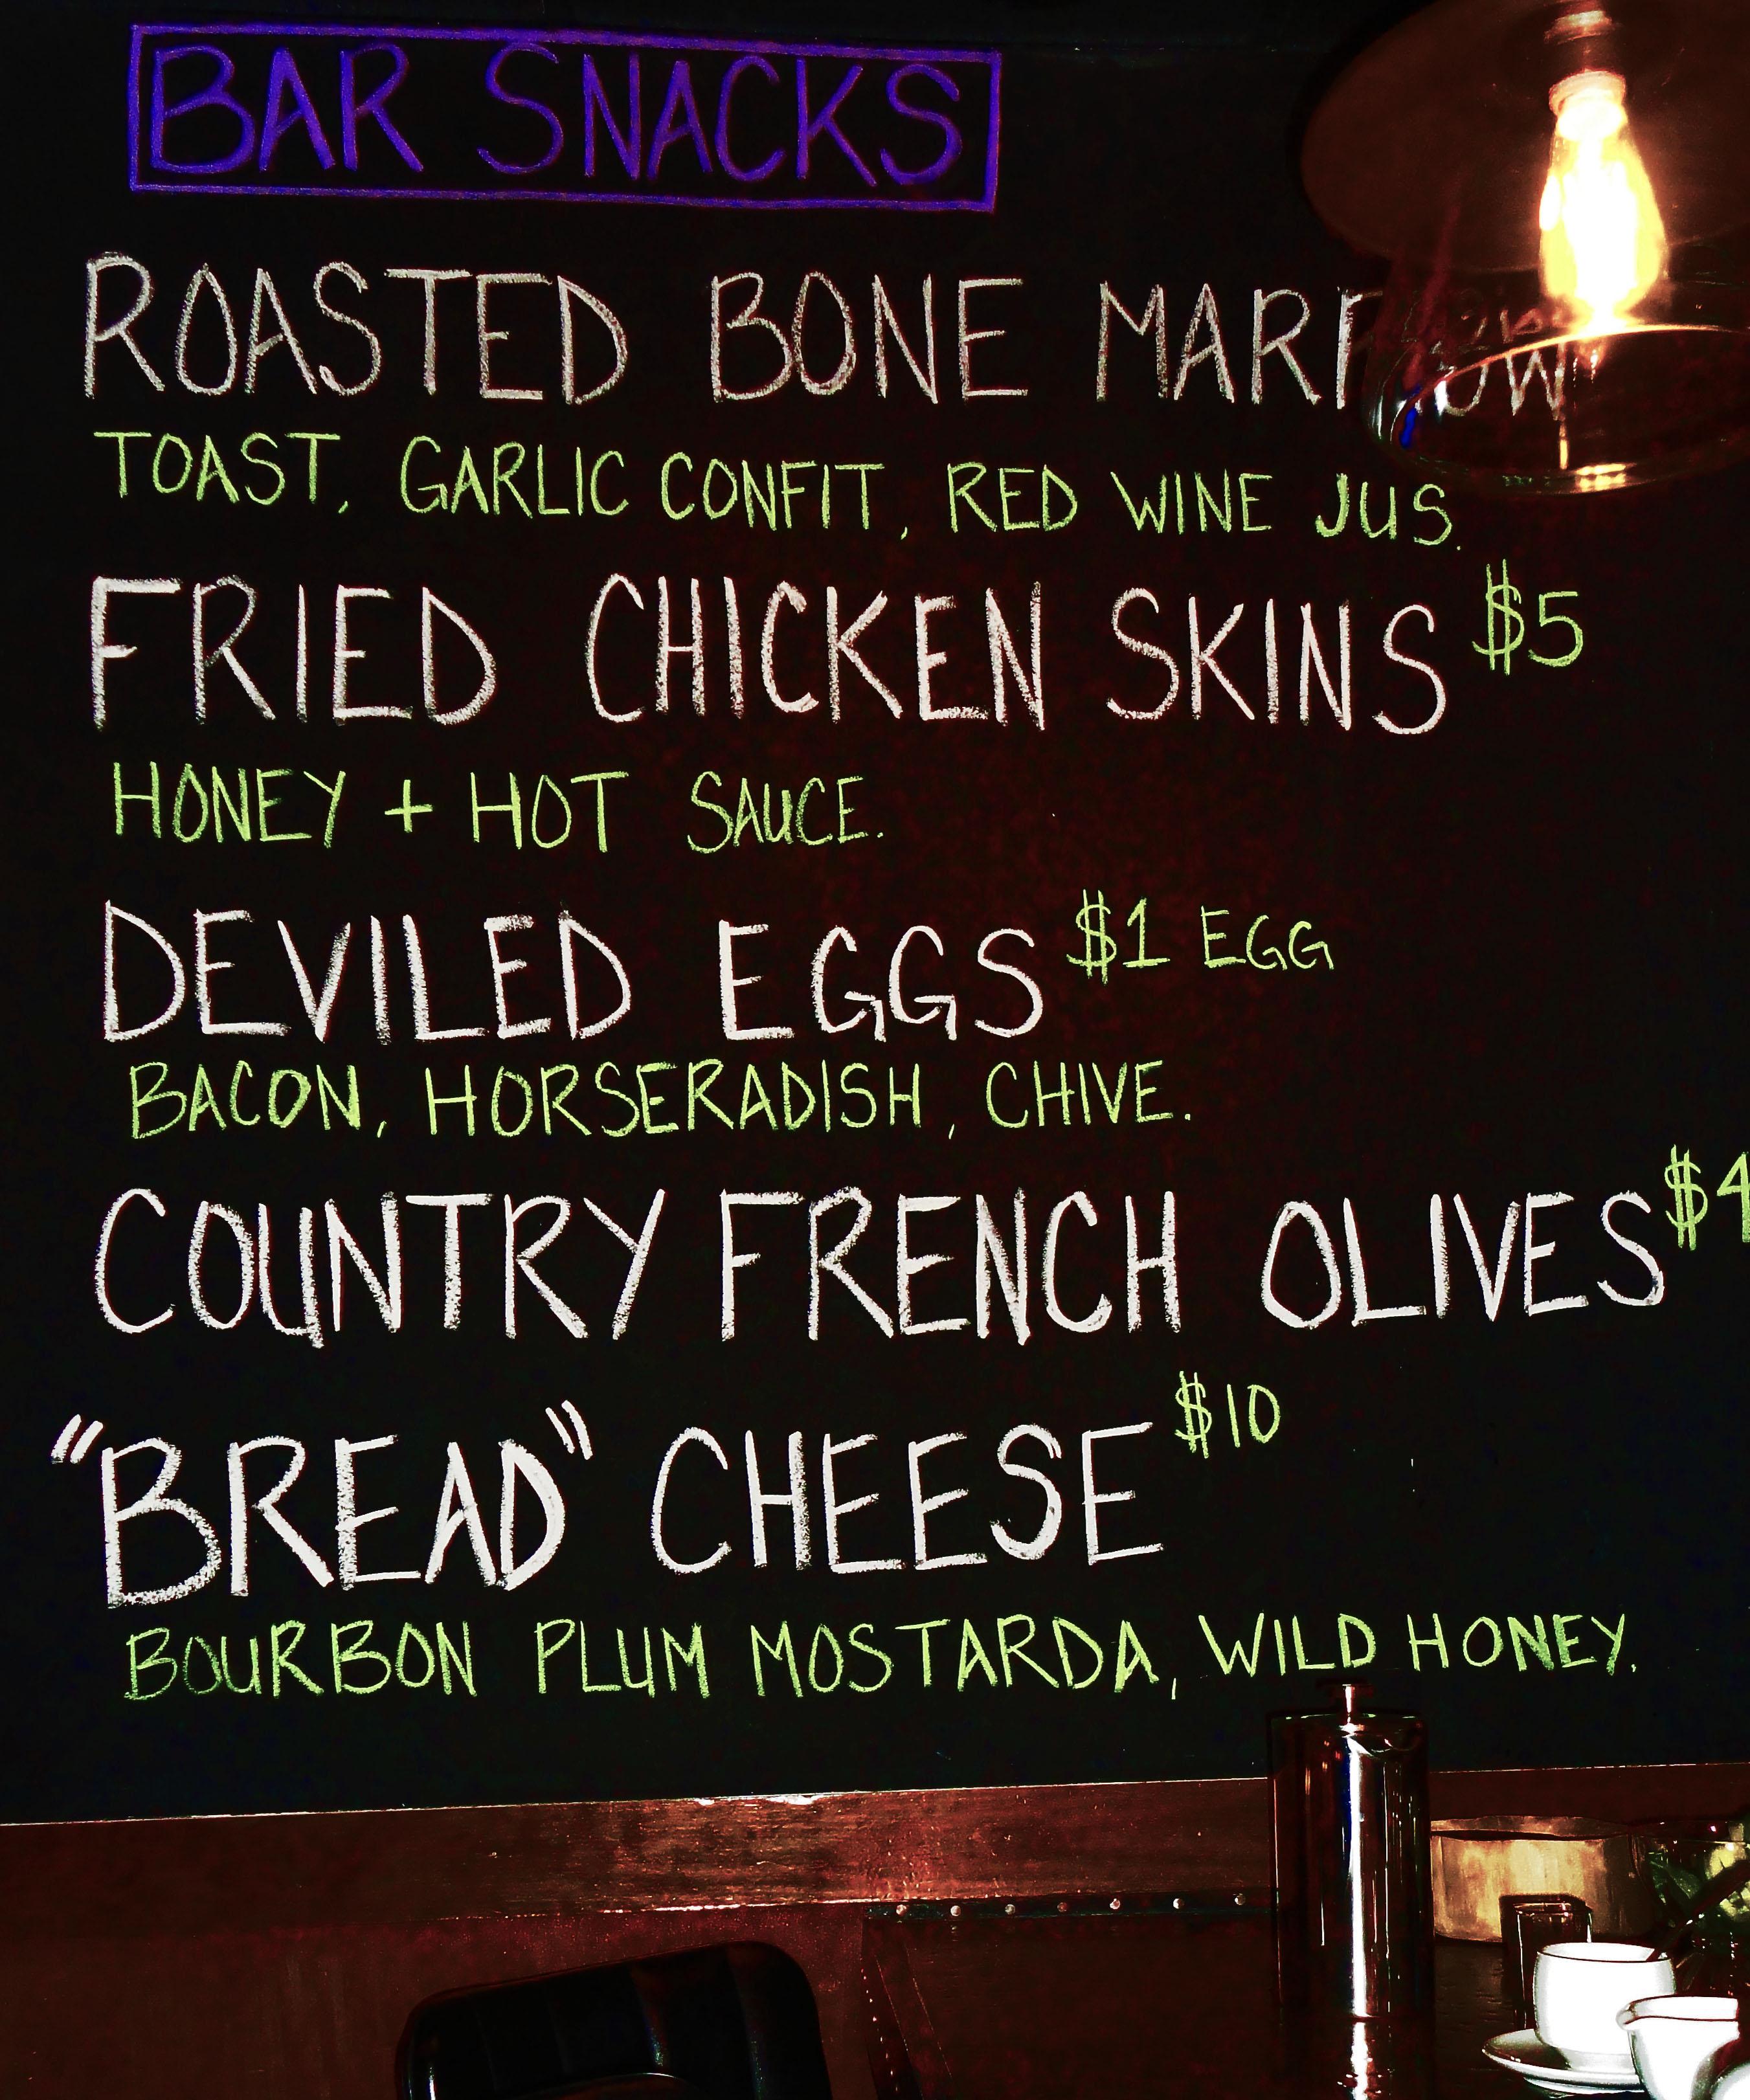 BAR SNACKS
ROASTED BONE MARROW
TOAST, GARLIC CONFIT, RED WINE JUS.
FRIED CHICKEN SKINS $5
HONEY + HOT SAUCE.
DEVILED EGGS $1 EGG
BACON, HORSERADISH, CHIVE.
COUNTRY FRENCH OLIVES $4
"BREAD" CHEESE $10
BOURBON PLUM MOSTARDA, WILD HONEY.